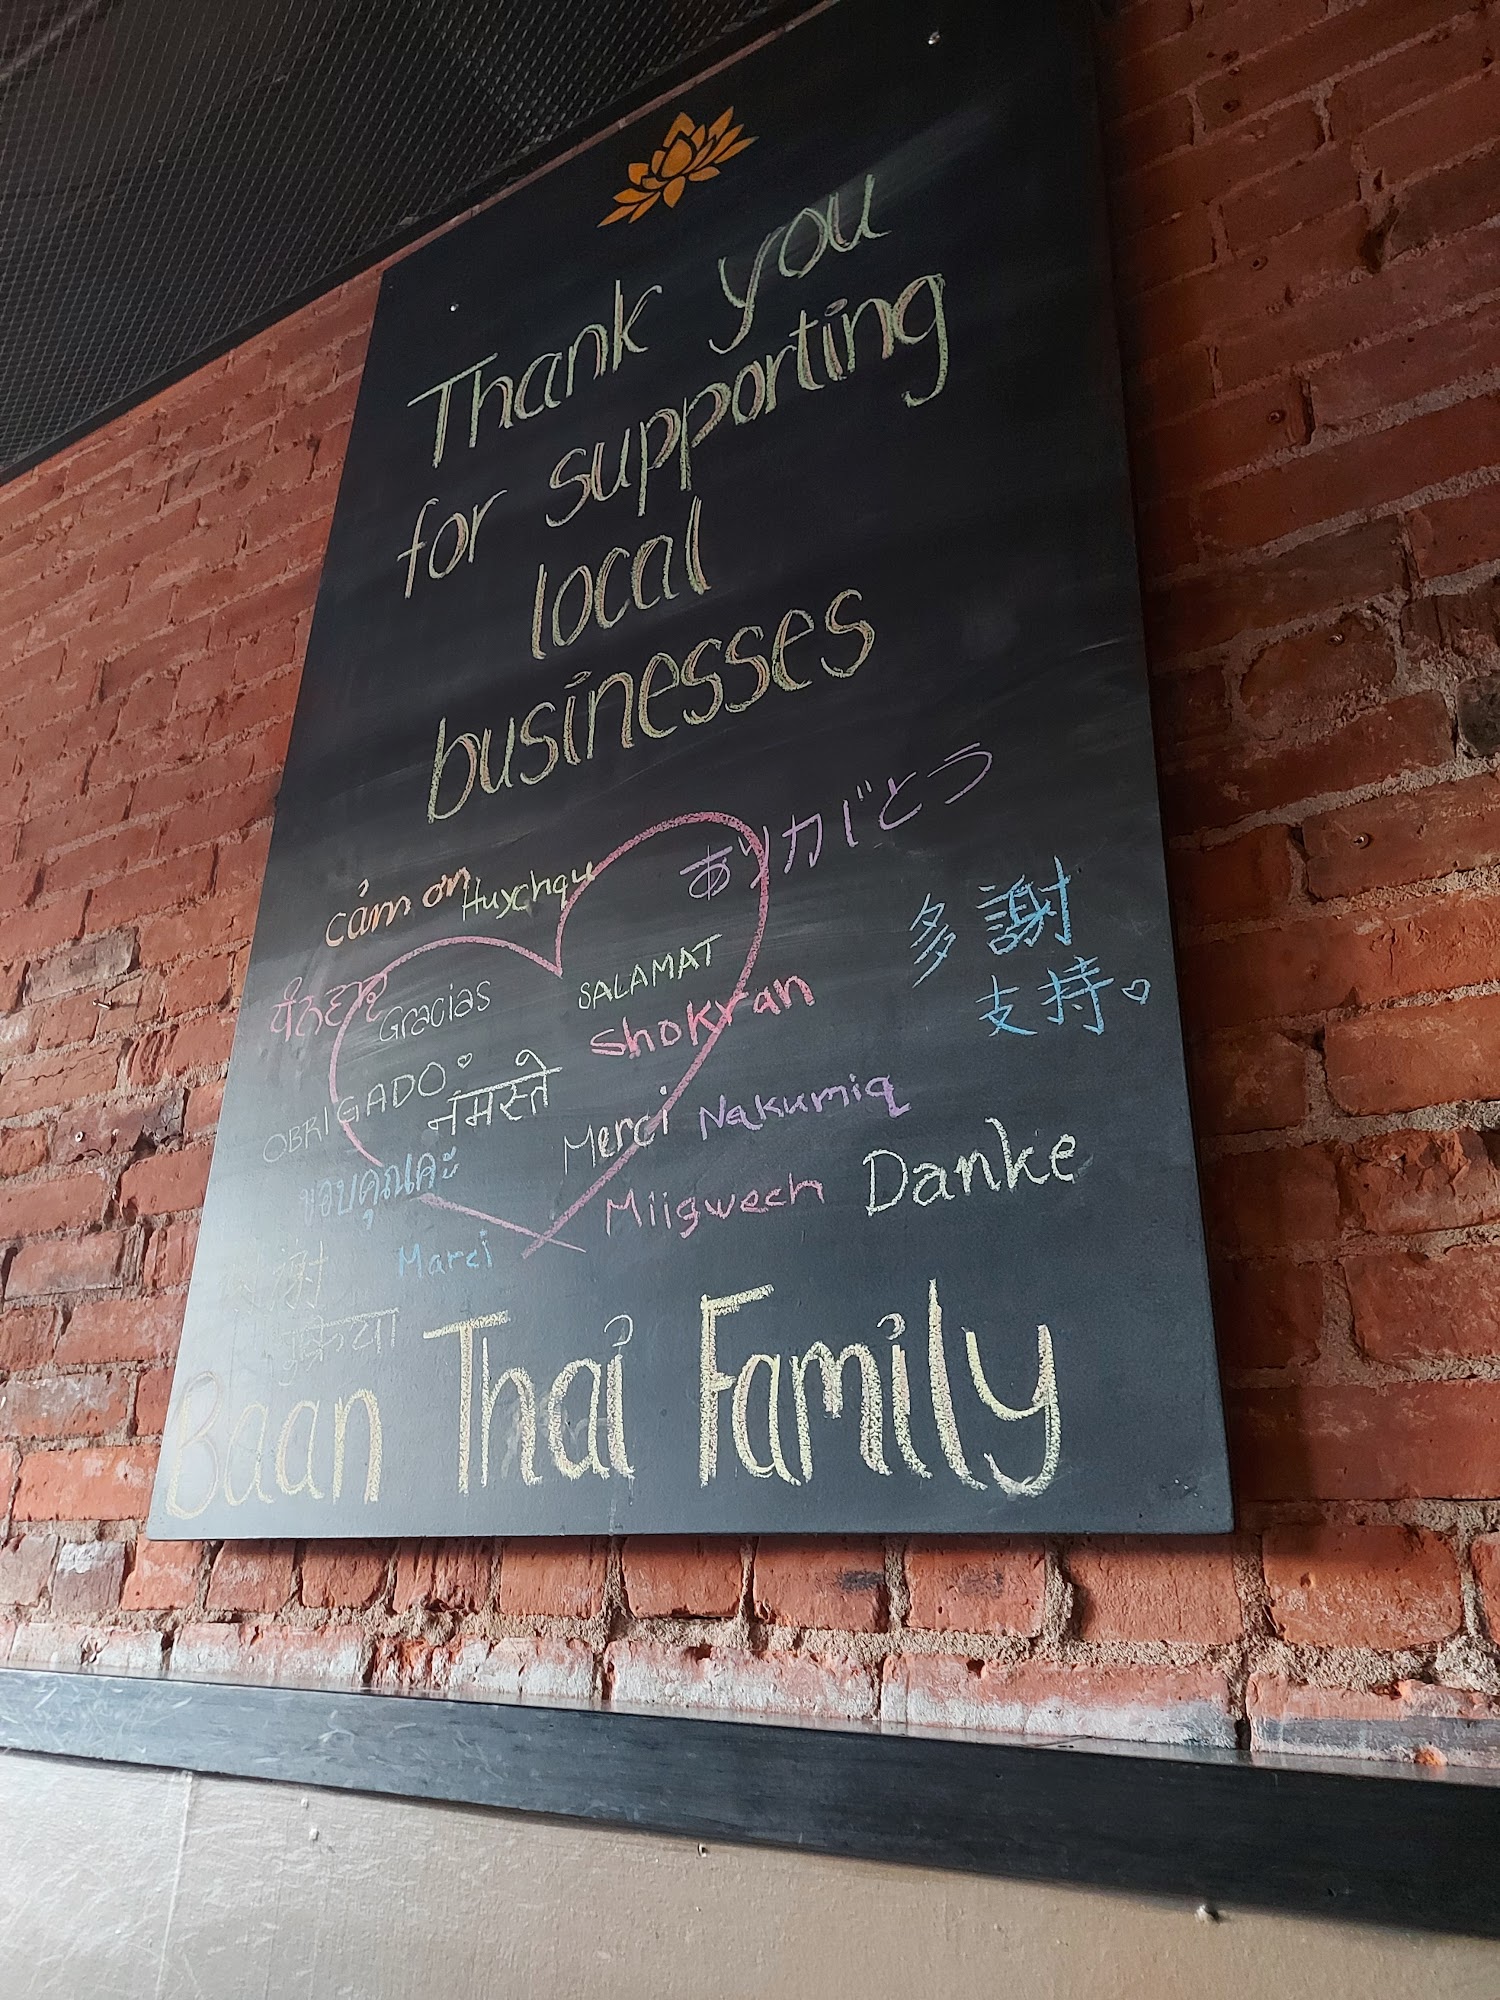 Thank you
for supporting
local
businesses
cảm ơn
Huychqu
ありがとう
多謝
支持
ਧੰਨਵਾਦ
Gracias
SALAMAT
Shokran
OBRIGADO
नमस्ते
Merci
Nakumiq
ขอบคุณค่ะ
Miigwech
Danke
Marci
Baan Thai Family